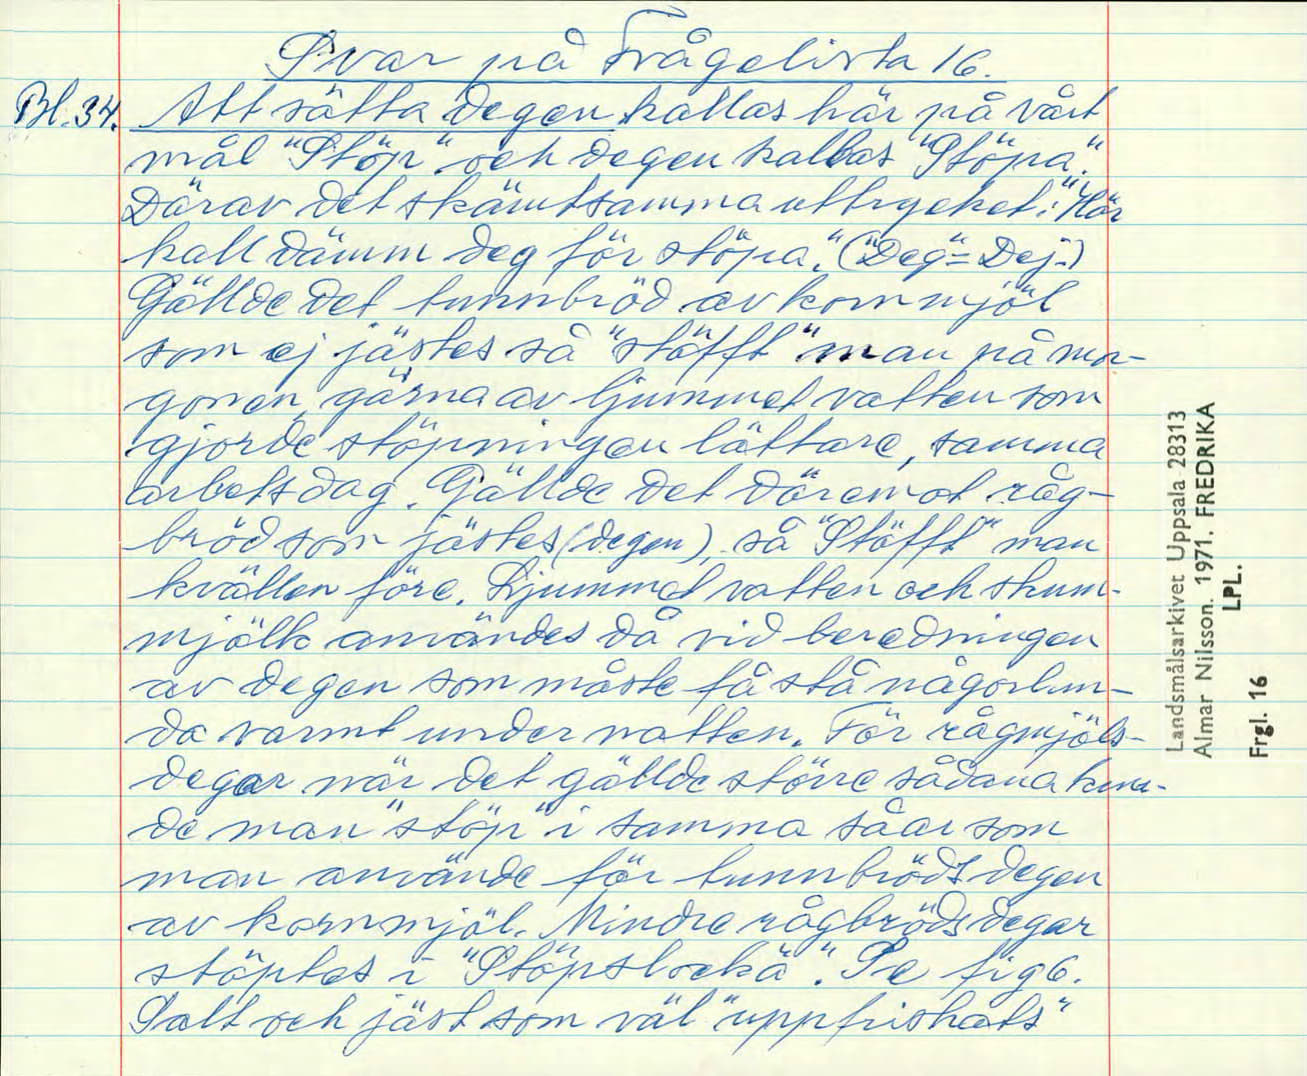 Svar på Frågelista 16.
Bl. 34. Att sätta degen kallas här på vårt
mål "Stöp" och degen kallas "Stöpa".
Därav det skämtsamma uttrycket: "Hör
kall dämm deg för stöpa." ("Deg"= Dej-)
Gällde det tunnbröd av kornmjöl
som ej jästes så "stöfft" man på mor-
gonen, gärna av ljummet vatten som
gjorde stöpningen lättare, samma
arbetsdag. Gällde det däremot råg-
bröd som jästes (degen), så "Stöfft" man
kvällen före. Ljummet vatten och skum-
mjölk användes då vid beredningen
av degen som måste få stå någorlun-
da varmt under natten. För rågmjöls-
degar när det gällde större sådana kun-
de man "stöp" i samma såar som
man använde för tunnbrödsdegen
av kornmjöl. Mindre rågbrödsdegar
stöptes i "Stöpslockä". Se fig 6.
Salt och jäst som väl "uppfriskats"
Landsmålsarkivet Uppsala 28313
Almar Nilsson. 1971. FREDRIKA
LPL.
Frgl. 16